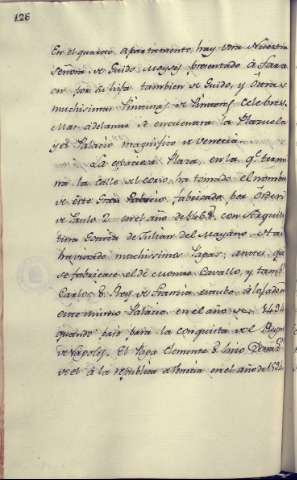 126
En el quarto apartamento, hay otra Nuestra
Señora de Guido, Moyses presentado à Fara
on por su hija tambien de Guido, y otras
muchisimas Pinturas de Pintores celebres.
Mas adelante se encuentra la Plazuela
y el Palacio magnifico de Venecia.
La espaciosa Plaza, en la q.e termi
na la calle del corso, ha tomado el nombre
de este Gran Palacio, fabricado por Orden
de Paulo 2. en el año de 1468. con Arquitec
tura de Julian del Mayano. Ha
muchissimos Papas, antes, que
se fabricase el de monte Cavallo, y tam
Carlos 8. Rey de Francia estubo alojado
en este mismo Palacio en el año de 1494
quando pasó para la conquista del Reyno
de Napoles. El Papa Clemente 8. hizo
de el à la republica Veneta en el año de